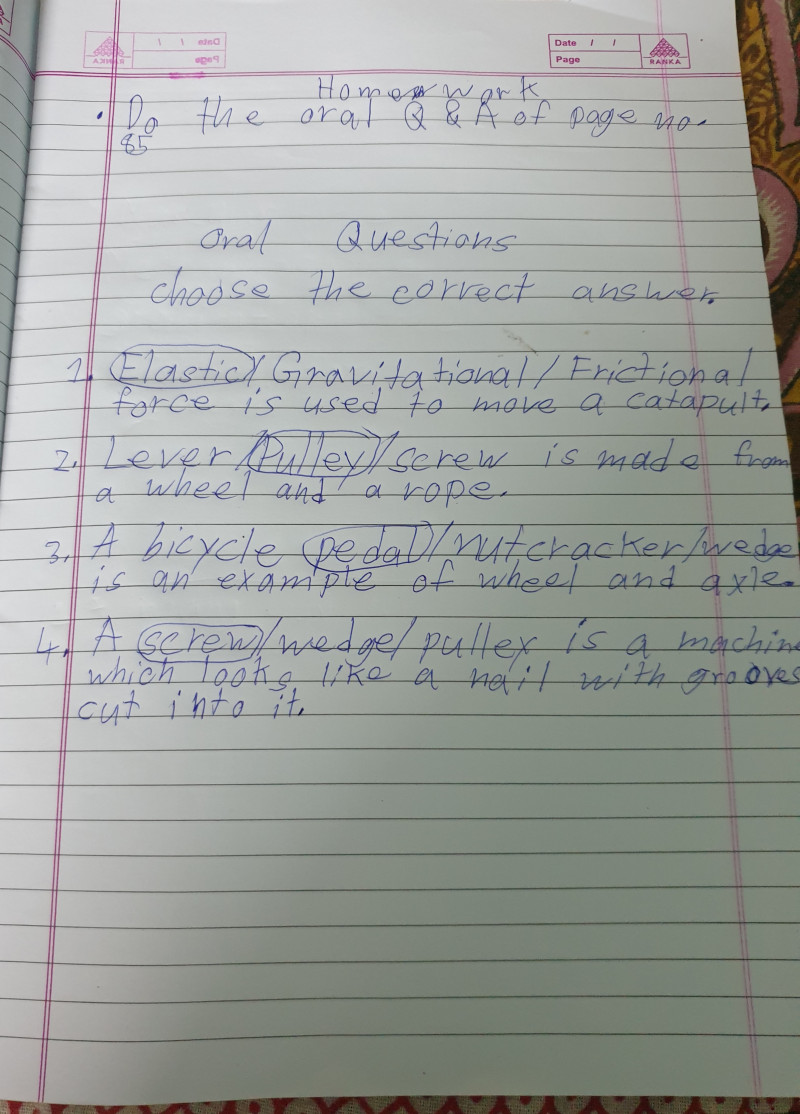 Date / /
Page
RANKA
Home work
• Do the oral Q & A of page no.
85
Oral Questions
choose the correct answer.
1. Elastic/Gravitational/Frictional
force is used to move a catapult.
2. Lever/Pulley/screw is made from
a wheel and a rope.
3. A bicycle pedal/nutcracker/wedge
is an example of wheel and axle.
4. A screw/wedge/pulley is a machine
which looks like a nail with grooves
cut into it.